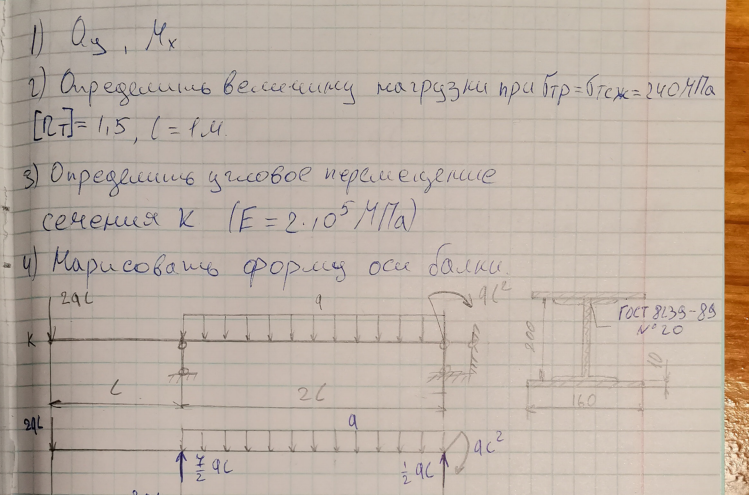 1) Qy, Mx
2) Определить величину нагрузки при σтр=σтсж=240МПа
[nт]=1,5, l=1м.
3) Определить угловое перемещение
сечения К (E=2·10⁵МПа)
4) Нарисовать форму оси балки.
2ql
q
ql²
ГОСТ 8239-89
№20
К
200
10
l
2l
160
2ql
q
ql²
7/2 ql
1/2 ql